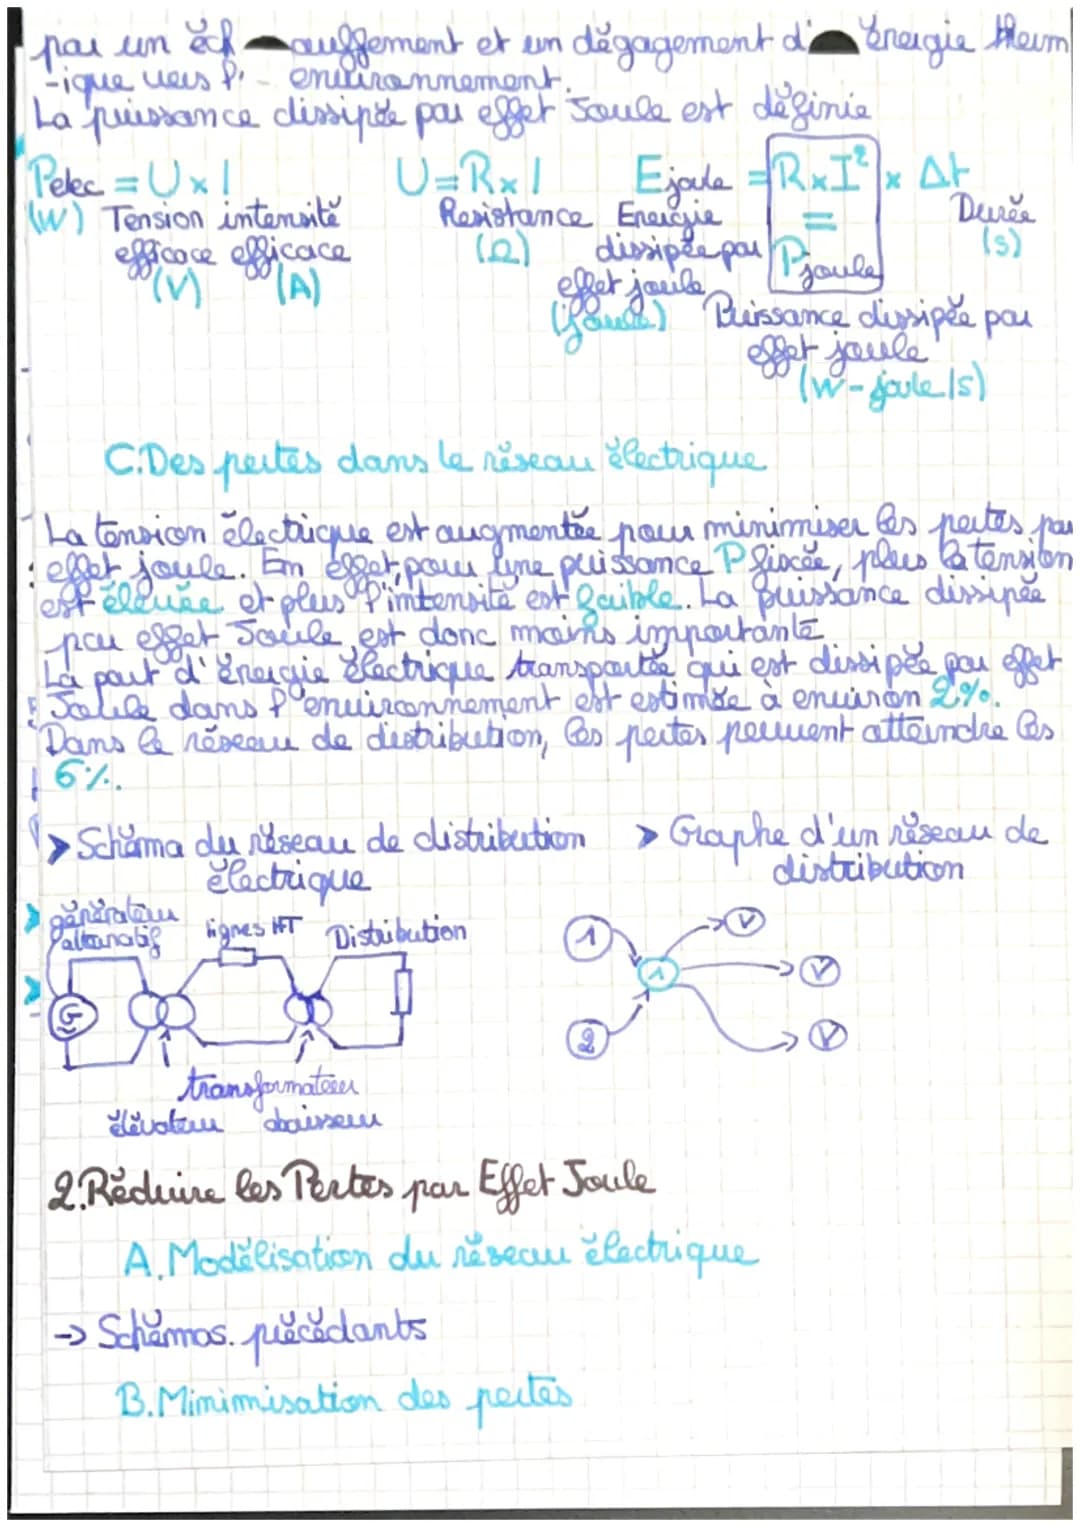 par un éch auffement et un dégagement d' énergie therm
-ique vers l' - environnement.
La puissance dissipée par effet Joule est définie
Pelec = U x I U = R x I E joule = R x I² x Δt
(W) Tension intensité Resistance Energie = Durée
efficace efficace (Ω) dissipée par P joule (s)
(V) (A) effet joule
(joule) Puissance dissipée par
effet joule
(W - joule/s)
C. Des pertes dans le réseau électrique
La tension électrique est augmentée pour minimiser les pertes par
effet joule. En effet, pour une puissance P fixée, plus la tension
est élevée et plus l'intensité est faible. La puissance dissipée
par effet Joule est donc moins importante
La part d'énergie électrique transportée qui est dissipée par effet
Joule dans l'environnement est estimée à environ 2%.
Dans le réseau de distribution, les pertes peuvent atteindre les
6%.
> Schéma du réseau de distribution
électrique
> Graphe d'un réseau de
distribution
générateur
alternatif
lignes HT
Distribution
G
transformateur
élévateur abaisseur
1
2
1
V
V
V
2. Réduire les Pertes par Effet Joule
A. Modélisation du réseau électrique
-> Schémas. précédants
B. Minimisation des pertes